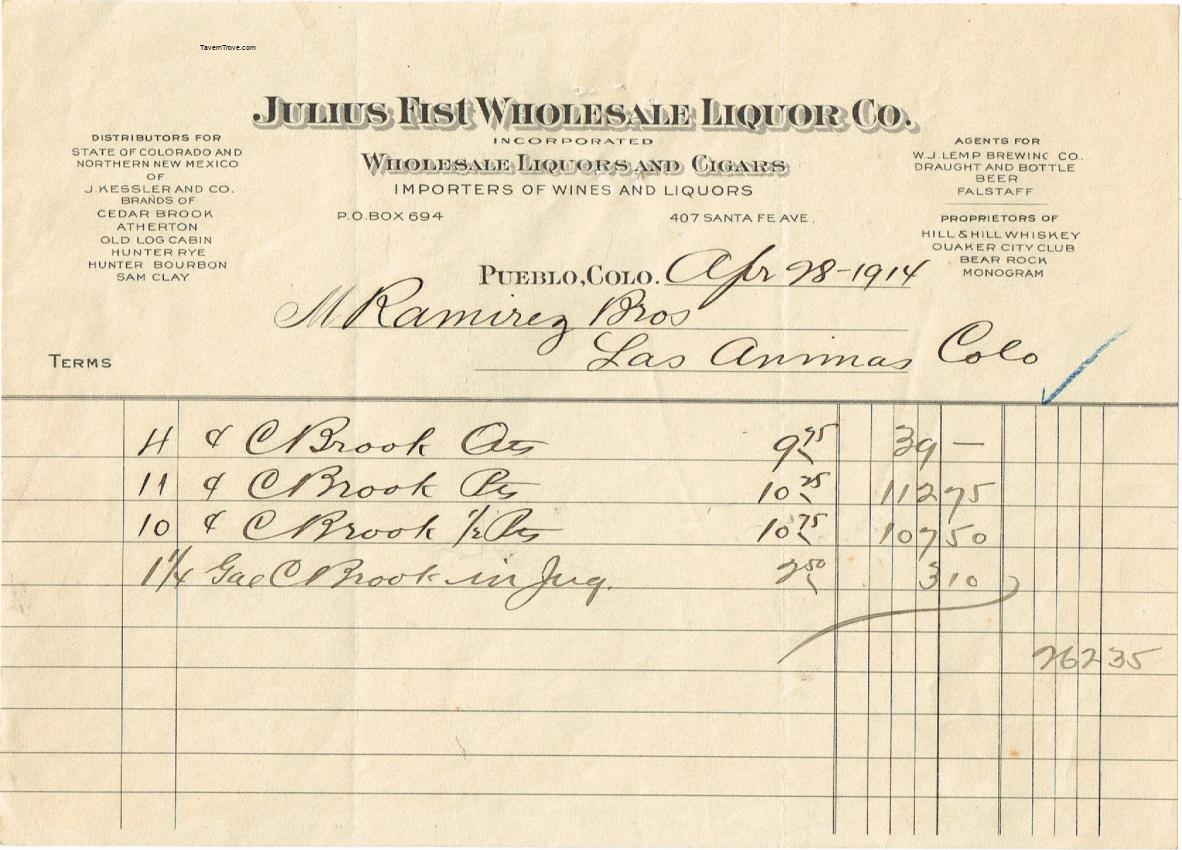 TavernTrove.com
JULIUS FIST WHOLESALE LIQUOR CO.
INCORPORATED
WHOLESALE LIQUORS AND CIGARS
IMPORTERS OF WINES AND LIQUORS
P.O. BOX 694 407 SANTA FE AVE.
DISTRIBUTORS FOR
STATE OF COLORADO AND
NORTHERN NEW MEXICO
OF
J. KESSLER AND CO.
BRANDS OF
CEDAR BROOK
ATHERTON
OLD LOG CABIN
HUNTER RYE
HUNTER BOURBON
SAM CLAY
AGENTS FOR
W.J. LEMP BREWING CO.
DRAUGHT AND BOTTLE
BEER
FALSTAFF
PROPRIETORS OF
HILL & HILL WHISKEY
QUAKER CITY CLUB
BEAR ROCK
MONOGRAM
PUEBLO, COLO. Apr 28-1914
M Ramirez Bros
Las Animas Colo
TERMS
4 ¢ C Brook Qts 9 75 39 —
11 ¢ C Brook Pts 10 25 112 75
10 ¢ C Brook 1/2 Pts 10 75 107 50
1 1/4 Gal C Brook in Jug. 2 50 3 10
262 35